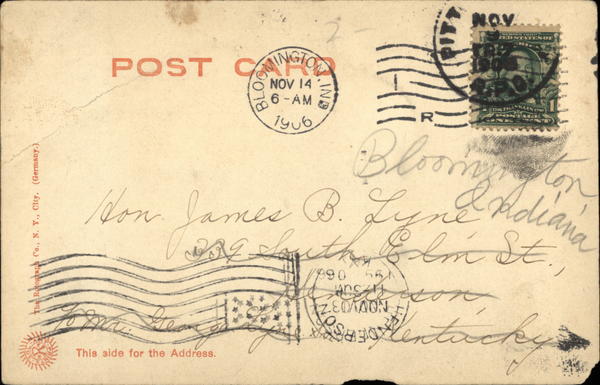 POST CARD
BLOOMINGTON, IND
NOV 14
6-AM
1906
R
PITT
NOV
1906
POSTAGE
Bloomington,
Indiana
Hon. James B. Lyne
329 South Elm St.,
Henderson,
Kentucky
HENDERSON
KY.
NOV 03
1906
The Rotograph Co., N. Y., City. (Germany.)
This side for the Address.